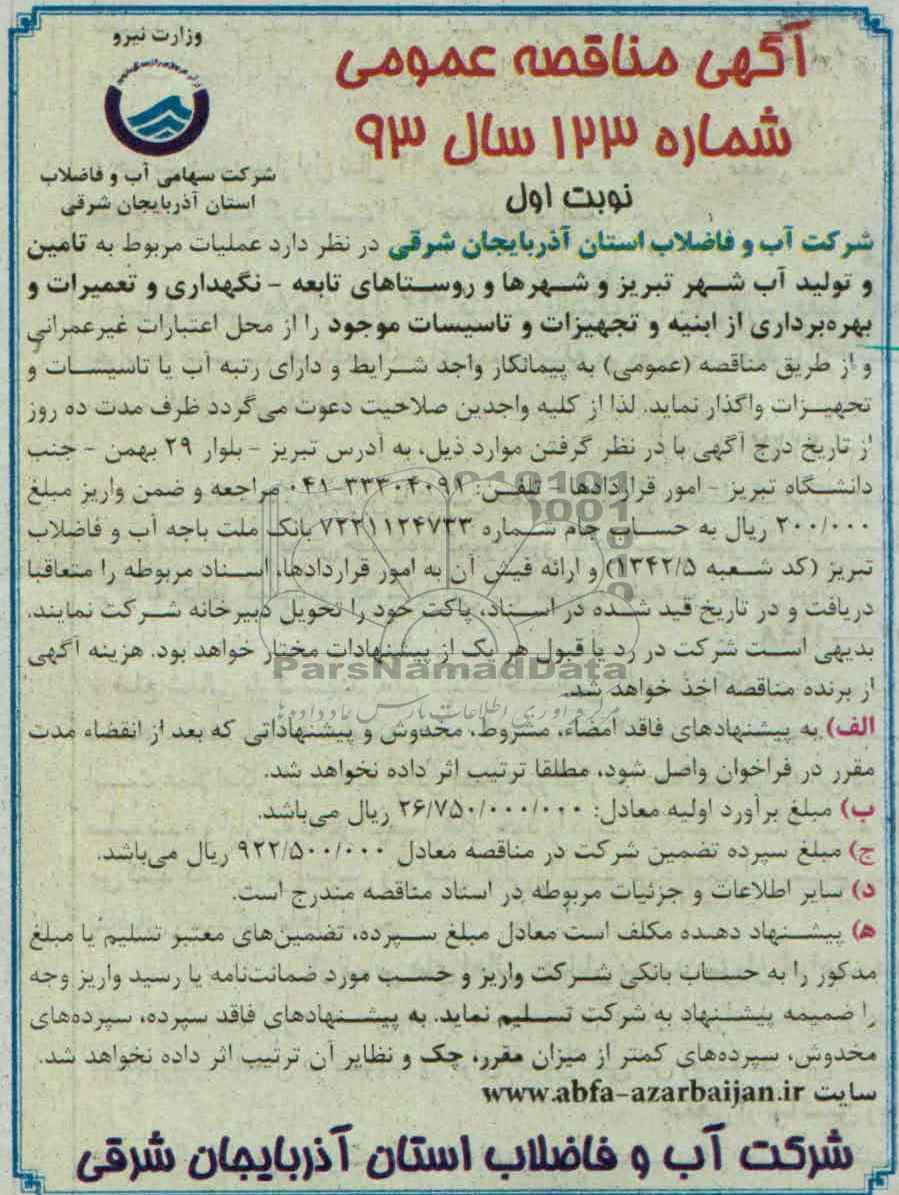 وزارت نیرو
شرکت سهامی آب و فاضلاب
استان آذربایجان شرقی
آگهی مناقصه عمومی
شماره ۱۲۳ سال ۹۳
نوبت اول
شرکت آب و فاضلاب استان آذربایجان شرقی در نظر دارد عملیات مربوط به تامین
و تولید آب شهر تبریز و شهرها و روستاهای تابعه - نگهداری و تعمیرات و
بهره‌برداری از ابنیه و تجهیزات و تاسیسات موجود را از محل اعتبارات غیرعمرانی
و از طریق مناقصه (عمومی) به پیمانکار واجد شرایط و دارای رتبه آب یا تاسیسات و
تجهیزات واگذار نماید. لذا از کلیه واجدین صلاحیت دعوت می‌گردد ظرف مدت ده روز
از تاریخ درج آگهی با در نظر گرفتن موارد ذیل، به آدرس تبریز - بلوار ۲۹ بهمن - جنب
دانشگاه تبریز - امور قراردادها - تلفن: ۳۳۳۰۴۰۹۱-۰۴۱ مراجعه و ضمن واریز مبلغ
۲۰۰/۰۰۰ ریال به حساب جام شماره ۷۲۲۱۱۲۴۷۳۳ بانک ملت باجه آب و فاضلاب
تبریز (کد شعبه ۱۳۴۲/۵) و ارائه فیش آن به امور قراردادها، اسناد مربوطه را متعاقبا
دریافت و در تاریخ قید شده در اسناد، پاکت خود را تحویل دبیرخانه شرکت نمایند.
بدیهی است شرکت در رد یا قبول هر یک از پیشنهادات مختار خواهد بود. هزینه آگهی
از برنده مناقصه اخذ خواهد شد.
ParsNamadData
الف) به پیشنهادهای فاقد امضاء، مشروط، مخدوش و پیشنهاداتی که بعد از انقضاء مدت
مقرر در فراخوان واصل شود، مطلقا ترتیب اثر داده نخواهد شد.
ب) مبلغ برآورد اولیه معادل: ۲۶/۷۵۰/۰۰۰/۰۰۰ ریال می‌باشد.
ج) مبلغ سپرده تضمین شرکت در مناقصه معادل ۹۲۲/۵۰۰/۰۰۰ ریال می‌باشد.
د) سایر اطلاعات و جزئیات مربوطه در اسناد مناقصه مندرج است.
ه) پیشنهاد دهنده مکلف است معادل مبلغ سپرده، تضمین‌های معتبر تسلیم یا مبلغ
مذکور را به حساب بانکی شرکت واریز و حسب مورد ضمانت‌نامه یا رسید واریز وجه
را ضمیمه پیشنهاد به شرکت تسلیم نماید. به پیشنهادهای فاقد سپرده، سپرده‌های
مخدوش، سپرده‌های کمتر از میزان مقرر، چک و نظایر آن ترتیب اثر داده نخواهد شد.
سایت www.abfa-azarbaijan.ir
شرکت آب و فاضلاب استان آذربایجان شرقی